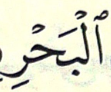 ٱلْبَحْرِ